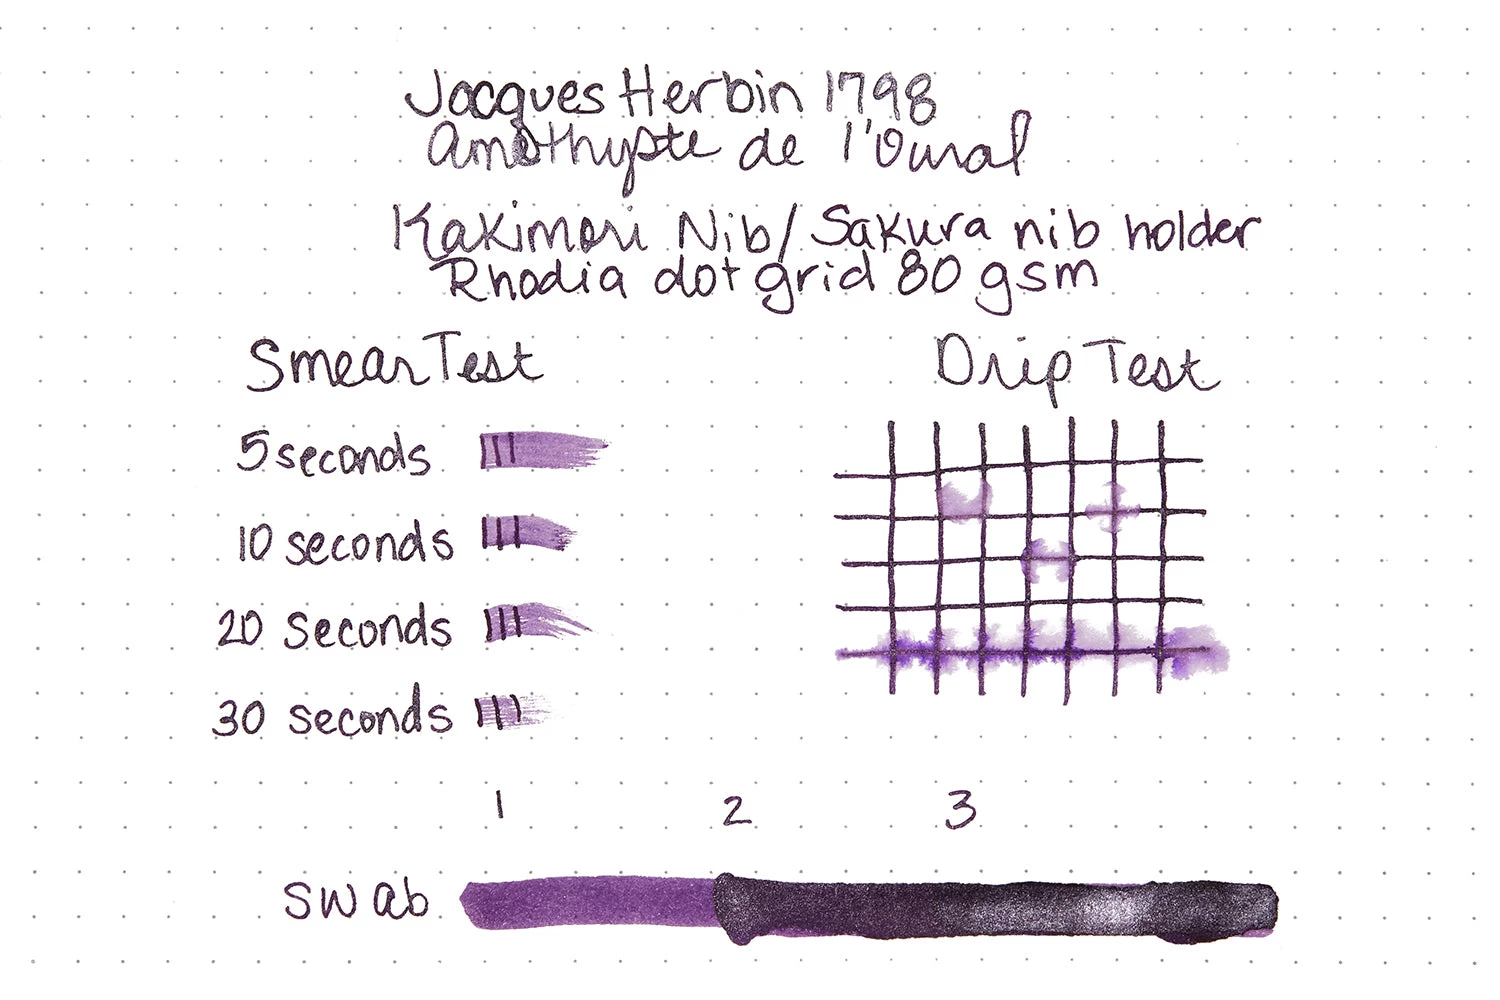 Jacques Herbin 1798
Amethyste de l'Oural
Kakimori Nib/Sakura nib holder
Rhodia dot grid 80 gsm
Smear Test
Drip Test
5 seconds
10 seconds
20 seconds
30 seconds
1 2 3
Swab